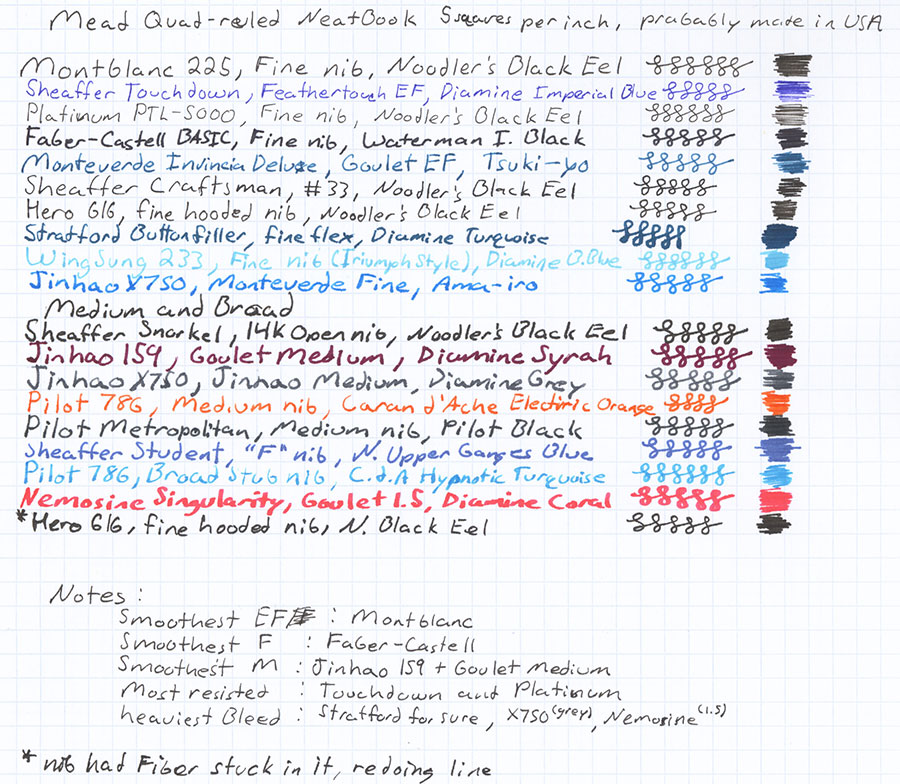 Mead Quad-ruled NeatBook 5 squares per inch, probably made in USA
Montblanc 225, Fine nib, Noodler's Black Eel
Sheaffer Touchdown, Feathertouch EF, Diamine Imperial Blue
Platinum PTL-5000, Fine nib, Noodler's Black Eel
Faber-Castell BASIC, Fine nib, Waterman I. Black
Monteverde Invincia Deluxe, Goulet EF, Tsuki-yo
Sheaffer Craftsman, #33, Noodler's Black Eel
Hero 616, fine hooded nib, Noodler's Black Eel
Stratford Buttonfiller, fine flex, Diamine Turquoise
WingSung 233, Fine nib (Triumph Style), Diamine D.Blue
Jinhao X750, Monteverde Fine, Ama-iro
Medium and Broad
Sheaffer Snorkel, 14K Open nib, Noodler's Black Eel
Jinhao 159, Goulet Medium, Diamine Syrah
Jinhao X750, Jinhao Medium, Diamine Grey
Pilot 78G, Medium nib, Caran d'Ache Electiric Orange
Pilot Metropolitan, Medium nib, Pilot Black
Sheaffer Student, "F" nib, N. Upper Ganges Blue
Pilot 78G, Broad Stub nib, C.d.A Hypnotic Turquoise
Nemosine Singularity, Goulet 1.5, Diamine Coral
*Hero 616, fine hooded nib, N. Black Eel
Notes:
Smoothest EF : Montblanc
Smoothest F : Faber-Castell
Smoothest M : Jinhao 159 + Goulet Medium
Most resisted : Touchdown and Platinum
heaviest Bleed : Stratford for sure, X750 (grey), Nemosine (1.5)
* nib had Fiber stuck in it, redoing line